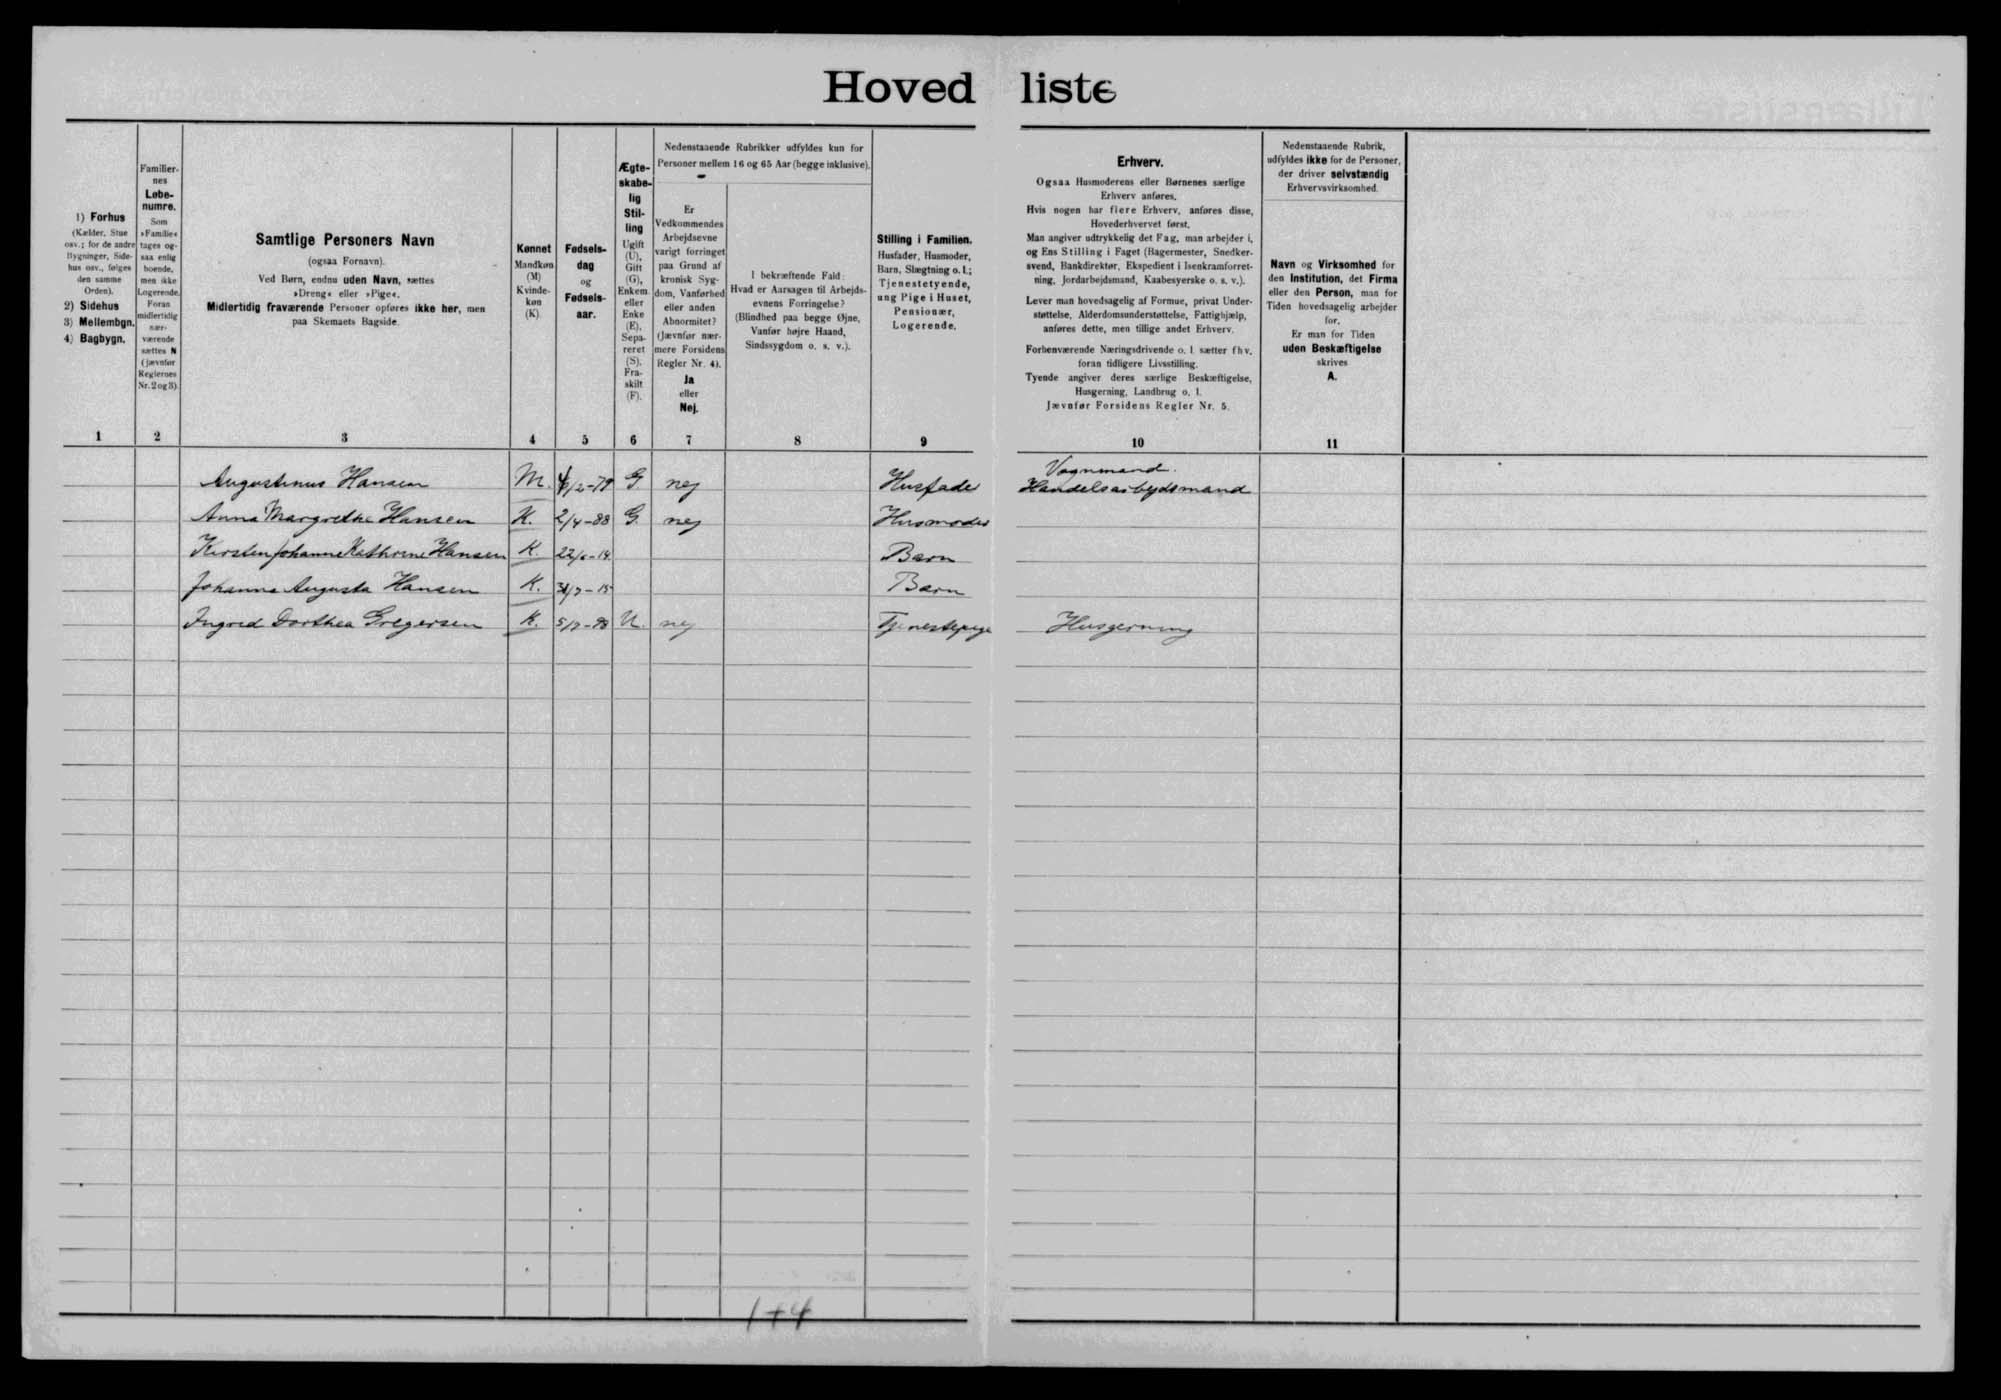 Hovedliste
1) Forhus
(Kælder, Stue
osv.; for de andre
Bygninger, Side-
hus osv., følges
den samme
Orden).
2) Sidehus
3) Mellembgn.
4) Bagbygn.
1
Familier-
nes
Løbe-
numre.
Som
»Familie«
tages og-
saa enlig
boende,
men ikke
Logerende.
Foran
midlertidig
nær-
værende
sættes N
(jævnfør
Reglernes
Nr. 2 og 3).
2
Samtlige Personers Navn
(ogsaa Fornavn).
Ved Børn, endnu uden Navn, sættes
»Dreng« eller »Pige«.
Midlertidig fraværende Personer opføres ikke her, men
paa Skemaets Bagside.
3
Kønnet
Mandkøn
(M)
Kvinde-
køn
(K).
4
Fødsels-
dag
og
Fødsels-
aar.
5
Ægte-
skabe-
lig
Stil-
ling
Ugift
(U),
Gift
(G),
Enkem.
eller
Enke
(E),
Sepa-
reret
(S),
Fra-
skilt
(F).
6
Nedenstaaende Rubrikker udfyldes kun for
Personer mellem 16 og 65 Aar (begge inklusive).
Er
Vedkommendes
Arbejdsevne
varigt forringet
paa Grund af
kronisk Syg-
dom, Vanførhed
eller anden
Abnormitet?
(Jævnfør nær-
mere Forsidens
Regler Nr. 4).
Ja
eller
Nej.
7
I bekræftende Fald:
Hvad er Aarsagen til Arbejds-
evnens Forringelse?
(Blindhed paa begge Øjne,
Vanfør højre Haand,
Sindssygdom o. s. v.).
8
Stilling i Familien.
Husfader, Husmoder,
Barn, Slægtning o. l.;
Tjenestetyende,
ung Pige i Huset,
Pensionær,
Logerende.
9
Erhverv.
Ogsaa Husmoderens eller Børnenes særlige
Erhverv anføres.
Hvis nogen har flere Erhverv, anføres disse,
Hovederhvervet først.
Man angiver udtrykkelig det Fag, man arbejder i,
og Ens Stilling i Faget (Bagermester, Snedker-
svend, Bankdirektør, Ekspedient i Isenkramforret-
ning, Jordarbejdsmand, Kaabesyerske o. s. v.).
Lever man hovedsagelig af Formue, privat Under-
støttelse, Alderdomsunderstøttelse, Fattighjælp,
anføres dette, men tillige andet Erhverv.
Forhenværende Næringsdrivende o. l. sætter fhv.
foran tidligere Livsstilling.
Tyende angiver deres særlige Beskæftigelse,
Husgerning, Landbrug o. l.
Jævnfør Forsidens Regler Nr. 5.
10
Nedenstaaende Rubrik,
udfyldes ikke for de Personer,
der driver selvstændig
Erhvervsvirksomhed.
Navn og Virksomhed for
den Institution, det Firma
eller den Person, man for
Tiden hovedsagelig arbejder
for.
Er man for Tiden
uden Beskæftigelse
skrives
A.
11
Vognmand.
Augustinus Hansen M. /2-79 G nej Husfader Handelsarbejdsmand
Anna Margrethe Hansen K. 2/4-88 G. nej Husmoder
Kirsten Johanne Kathrine Hansen K. 22/6-14. Barn
Johanne Augusta Hansen K. 31/7-15 Barn
Ingrid Dorthea Gregersen K. 5/7-98 U. nej Tjenestepige Husgerning
1+4